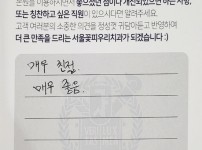 본원을 이용하시면서 좋으셨던 점이나 개선되었으면 하는 사항,
또는 칭찬하고 싶은 직원이 있으시다면 알려주세요.
고객 여러분의 소중한 의견을 정성껏 귀담아듣고 반영하여
더 큰 만족을 드리는 서울꽃피우리치과가 되겠습니다 :)
매우 친절
매우 좋음